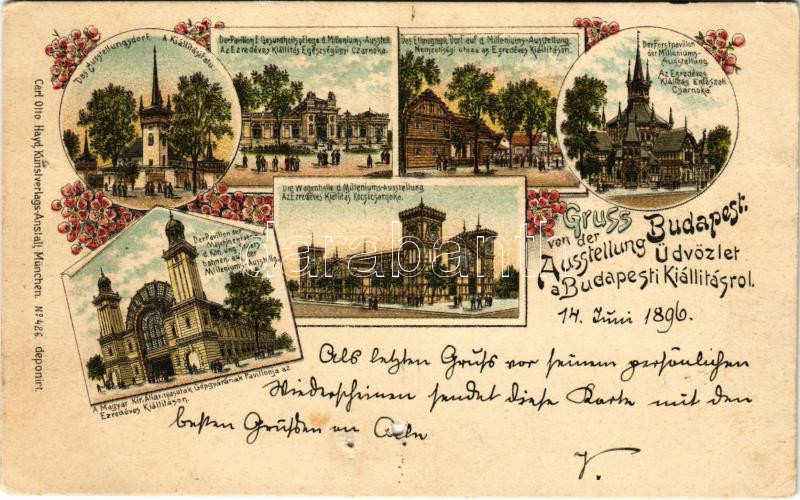 Das Ausstellungsdorf. A Kiállítás falu.
Der Pavillon f. Gesundheitspflege d. Milleniums-Ausstell.
Az Ezredéves Kiállítás Egészségügyi Csarnoka.
Das Ethnograph. Dorf auf d. Milleniums-Ausstellung.
Nemzetiségi utcza az Ezredéves Kiállításon.
Der Forstpavillon
der Milleniums-
Ausstellung.
Az Ezredéves
Kiállítás Erdészeti
Csarnoka.
Die Wagenhalle d. Milleniums-Ausstellung.
Az Ezredéves Kiállítás Kocsicsarnoka.
Der Pavillon der
Maschinenfabrik
d. Kön. ung. Staats-
bahnen. auf d.
Milleniums-Ausstellg.
A Magyar Kir. Államvasutak Gépgyárának Pavillonja az
Ezredéves Kiállításon.
Gruss
von der
Ausstellung Budapest.
Üdvözlet
a Budapesti Kiállításrol.
darabanth
www.darabanth.com
14. Juni 1896.
Als letzten Gruß vor seinem persönlichen
Wiederscheinen sendet diese Karte mit den
besten Grüßen an
Carl Otto Hayd, Kunstverlags-Anstalt, München. No 426 deponirt.